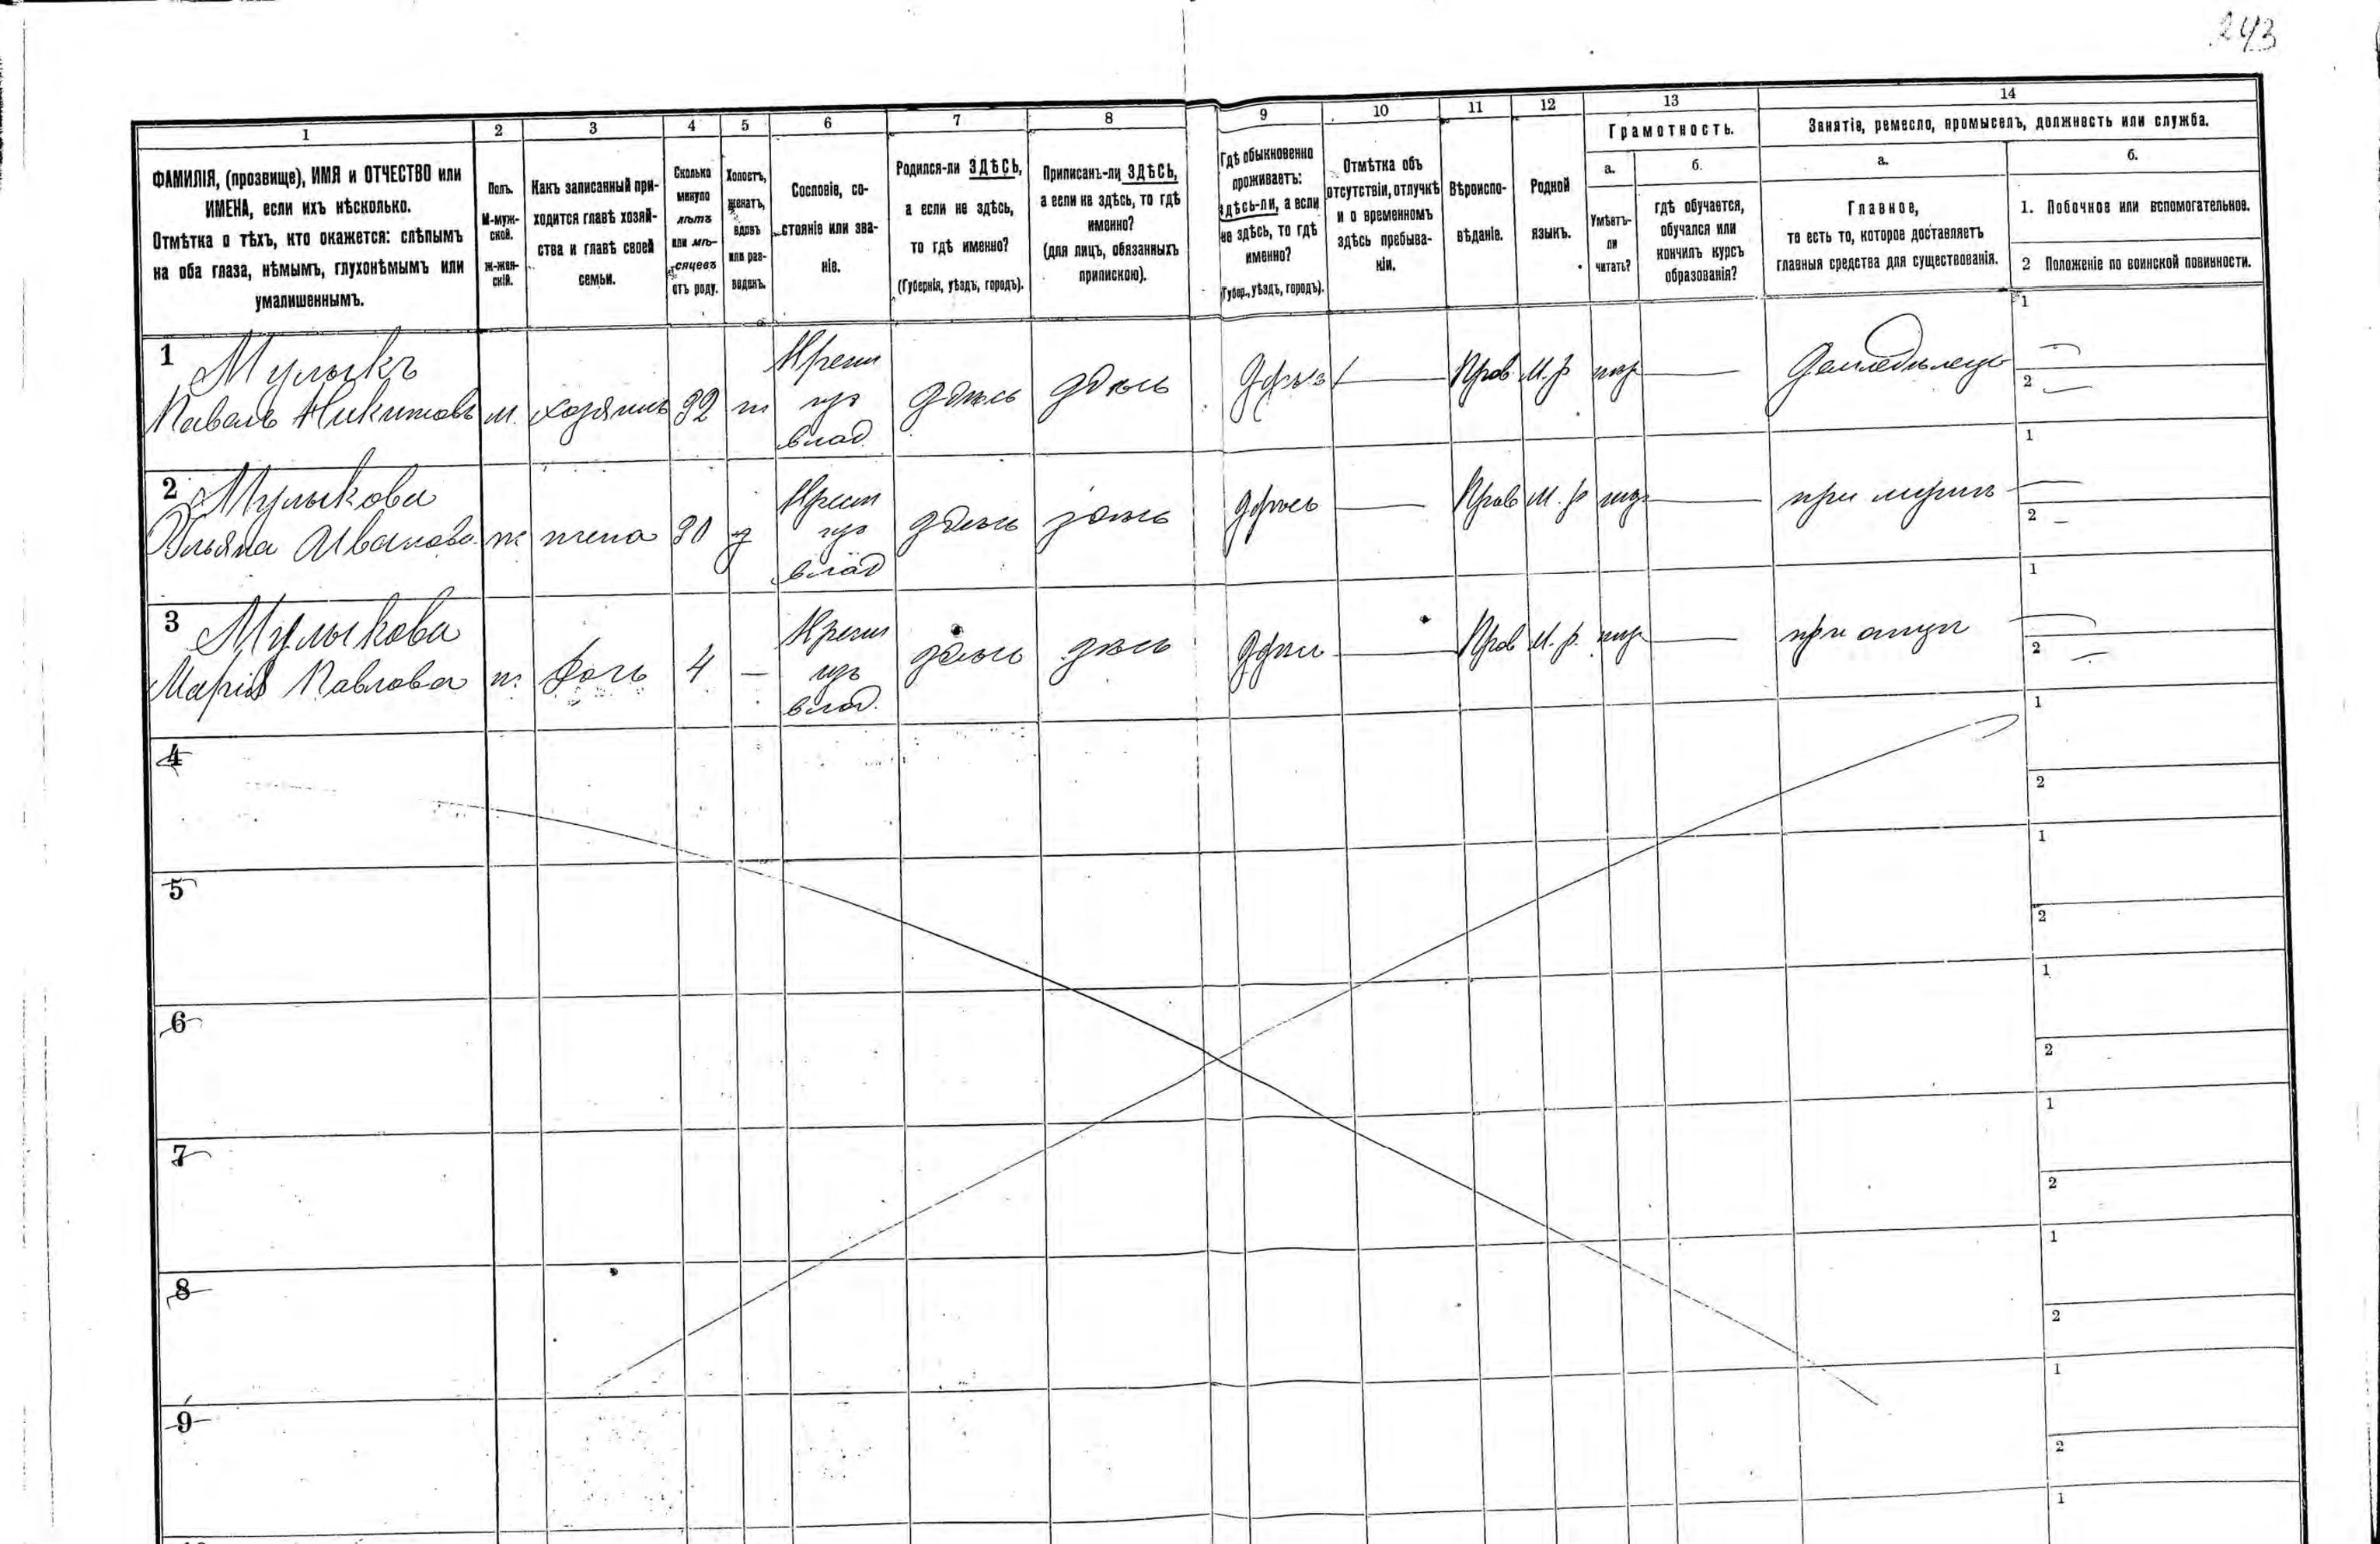 243
1 2 3 4 5 6 7 8 9 10 11 12 13 14
ФАМИЛІЯ, (прозвище), ИМЯ и ОТЧЕСТВО или
ИМЕНА, если ихъ нѣсколько.
Отмѣтка о тѣхъ, кто окажется: слѣпымъ
на оба глаза, нѣмымъ, глухонѣмымъ или
умалишеннымъ.
Полъ.
М-муж-
ской.
ж-жен-
скій.
Какъ записанный при-
ходится главѣ хозяй-
ства и главѣ своей
семьи.
Сколько
минуло
лѣтъ
или мѣ-
сяцевъ
отъ роду.
Холостъ,
женатъ,
вдовъ
или раз-
веденъ.
Сословіе, со-
стояніе или зва-
ніе.
Родился-ли ЗДѢСЬ,
а если не здѣсь,
то гдѣ именно?
(Губернія, уѣздъ, городъ).
Приписанъ-ли ЗДѢСЬ,
а если не здѣсь, то гдѣ
именно?
(для лицъ, обязанныхъ
припискою).
Гдѣ обыкновенно
проживаетъ:
здѣсь-ли, а если
не здѣсь, то гдѣ
именно?
(Губер., уѣздъ, городъ).
Отмѣтка объ
отсутствіи, отлучкѣ
и о временномъ
здѣсь пребыва-
ніи.
Вѣроиспо-
вѣданіе.
Родной
языкъ.
Грамотность.
а.
Умѣетъ-
ли
читать?
б.
гдѣ обучается,
обучался или
кончилъ курсъ
образованія?
Занятіе, ремесло, промыселъ, должность или служба.
а.
Главное,
то есть то, которое доставляетъ
главныя средства для существованія.
б.
1. Побочное или вспомогательное.
2 Положеніе по воинской повинности.
1 Мулыкъ
Павелъ Никитовъ м. хозяинъ 32 Крест из влад. здѣсь здѣсь здѣсь Прав М.р земледѣлецъ
1
2
2 Мулыкова
Ульяна Иванова ж жена 30 Крест из влад здѣсь здѣсь здѣсь Прав М.р при мужѣ
1
2
3 Мулыкова
Марія Павлова ж дочь 4 — Крест изъ влад. здѣсь здѣсь здѣсь Прав М.р. при отцѣ
1
2
4
1
2
5
1
2
6
1
2
7
1
2
8
1
2
9
1
2
1